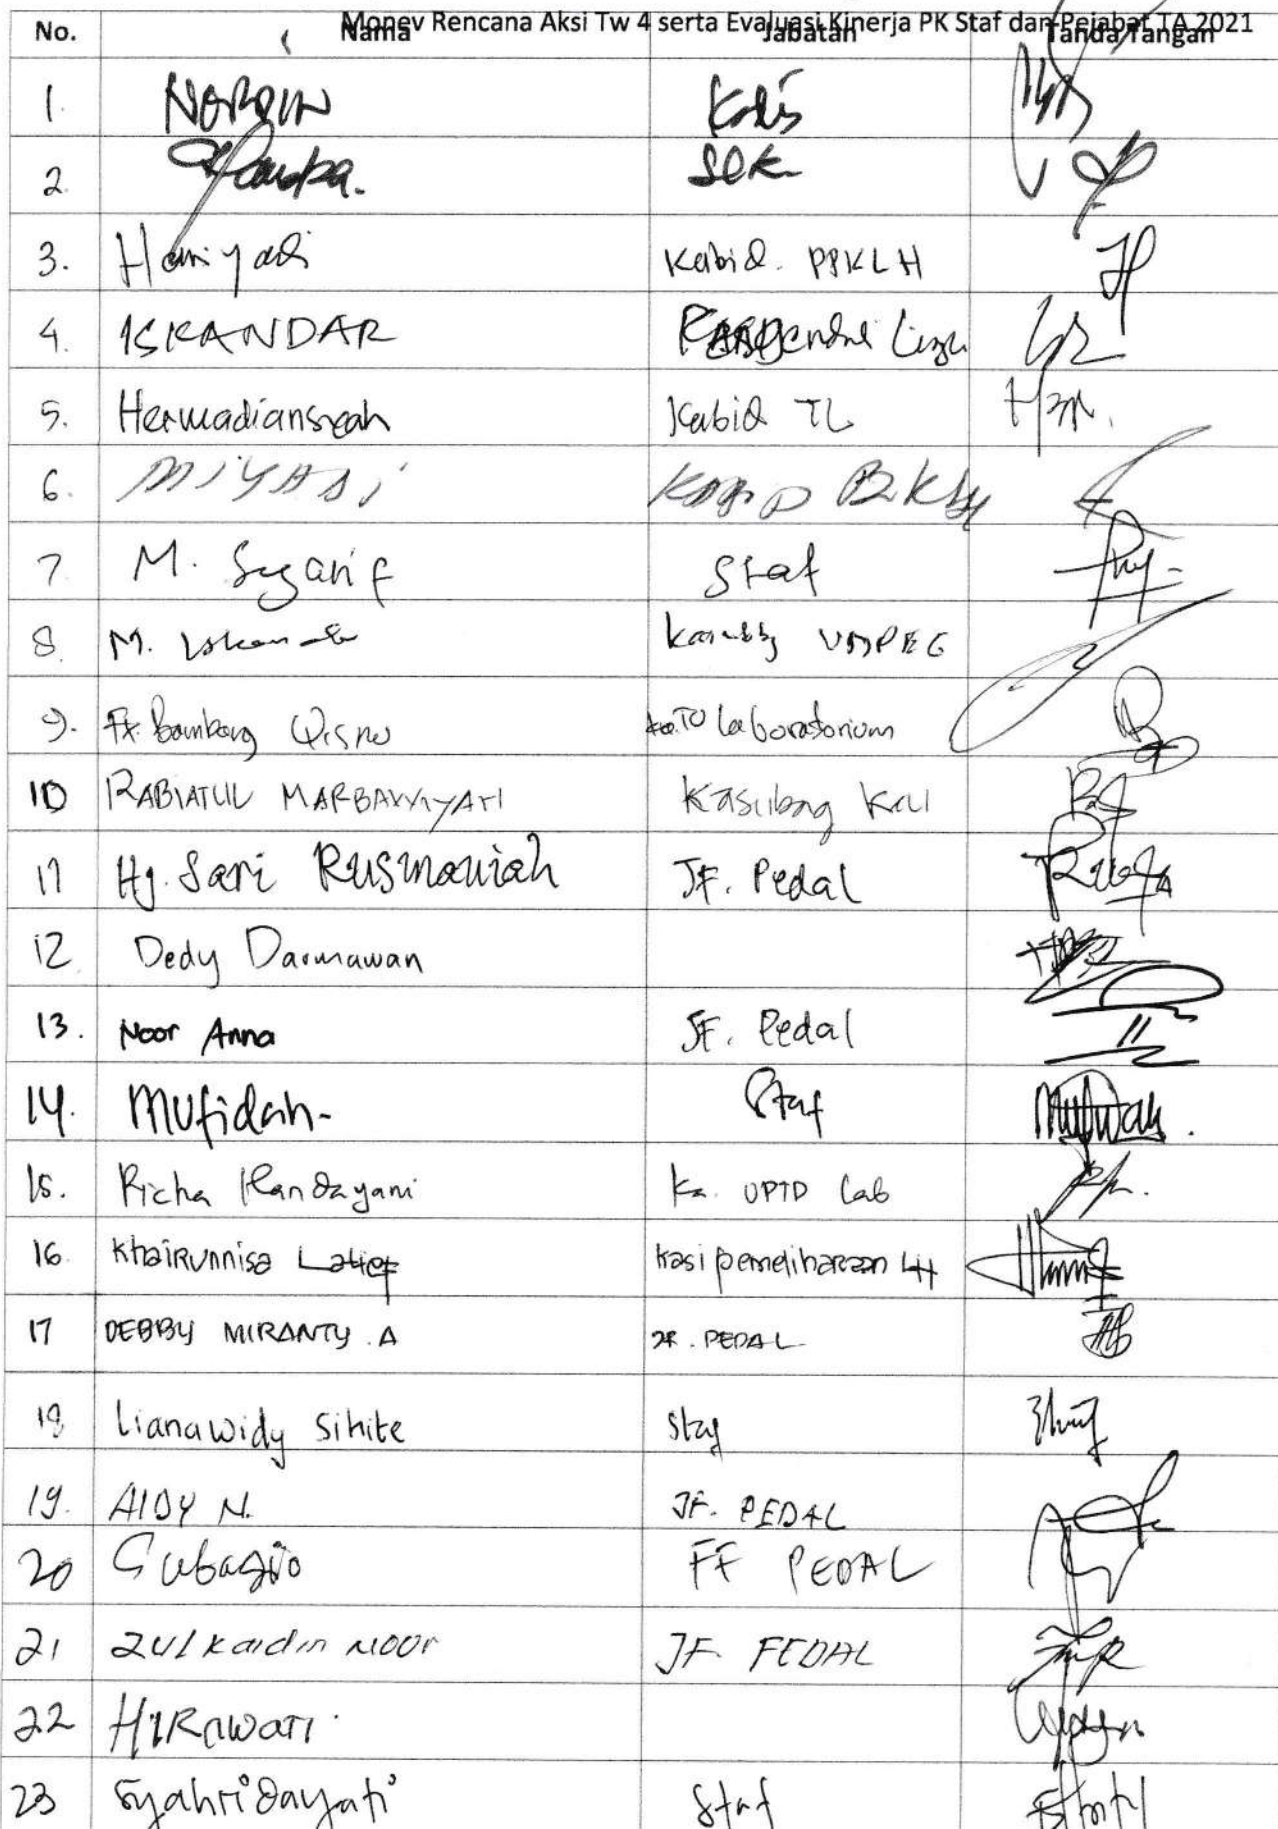 Monev Rencana Aksi Tw 4 serta Evaluasi Kinerja PK Staf dan Pejabat TA 2021
No. Nama Jabatan Tanda Tangan
1. NORDIN Kadis
2. Sek
3. Hariyadi Kabid. PPKLH
4. ISKANDAR
5. Hermadiansyah Kabid TL
6. MIYADI
7 M. Syarif Staf
8. M. Kasubbg UMPEG
9. Fx. Bambang Wisnu Ka.TU Laboratorium
10 RABIATUL Kasubbag Keu
11 Hj. Sari Rusmaniah JF. Pedal
12 Dedy Darmawan
13. Noor Anna JF. Pedal
14. Mufidah- Staf
15. Richa Handayani Ka. UPTD Lab
16. Khairunnisa Latief Kasi pemeliharaan LH
17 DEBBY MIRANTY. A JF. PEDAL
18 Lianawidy Sihite Staf
19. AIDY N. JF. PEDAL
20 Subagio FF PEDAL
21 Zulkaidin NOOr JF FEDAL
22 HIRAWATI
23 Syahridayati Staf